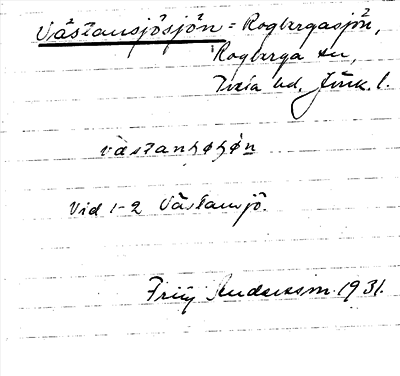 Västansjösjön = Rogbergasjön,
Rogberga sn,
Tveta hd, Jönk. l.
Vid 1-2 Västansjö.
Andersson 1931.